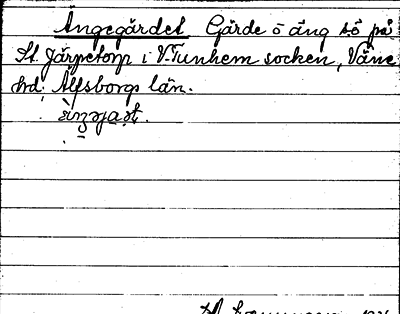 Ängegärdet Gärde ö äng sö på
St. Järpetorp i V-Tunhem socken, Väne
hrd. Älfsborgs län.